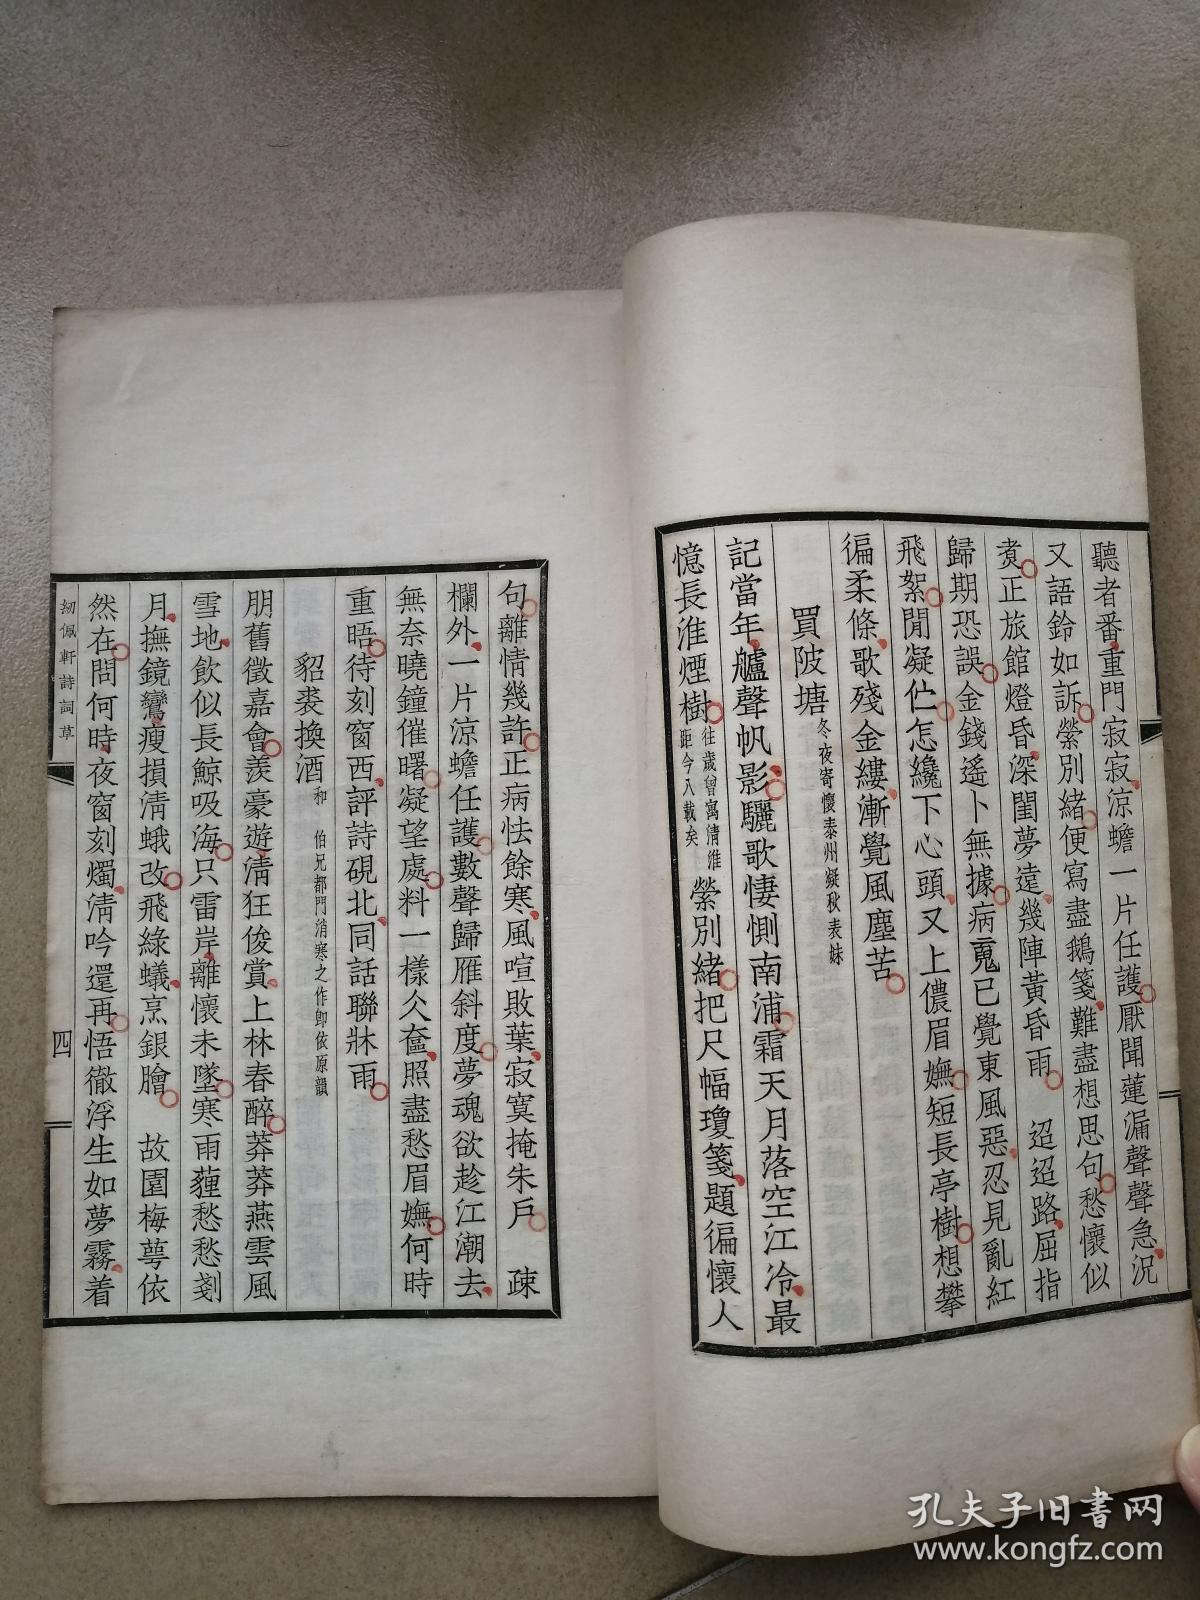 聽者番重門寂寂涼蟾一片任護厭聞蓮漏聲聲急況
又語鈴如訴縈別緒便寫盡鵝箋難盡想思句愁懷似
煑正旅館燈昏深閨夢遠幾陣黃昏雨　迢迢路屈指
歸期恐誤金錢遙卜無據病䰟已覺東風惡忍見亂紅
飛絮閒凝伫怎纔下心頭又上儂眉嫵短長亭樹想攀
徧柔條歌殘金縷漸覺風塵苦
買陂塘 冬夜寄懷泰州凝秋表妹
記當年艫聲帆影驪歌悽惻南浦霜天月落空江冷最
憶長淮煙樹 往歲曾寓清淮距今入載矣 縈別緒把尺幅瓊箋題徧懷人
句離情幾許正病怯餘寒風喧敗葉寂寞掩朱戶　疎
欄外一片涼蟾任護數聲歸雁斜度夢魂欲趁江潮去
無奈曉鐘催曙凝望處料一樣久奩照盡愁眉嫵何時
重晤待刻窗西評詩硯北同話聯牀雨
貂裘換酒 和　伯兄都門消寒之作卽依原韻
朋舊徵嘉會羨豪遊清狂俊賞上林春醉莽莽燕雲風
雪地飲似長鯨吸海只雷岸離懷未墜寒雨薶愁愁剗
月撫鏡鸞瘦損清蛾改飛綠蟻烹銀膾　故園梅萼依
然在問何時夜窗刻燭清吟還再悟徹浮生如夢霧着
紉佩軒詩詞草
四
孔夫子旧书网
www.kongfz.com